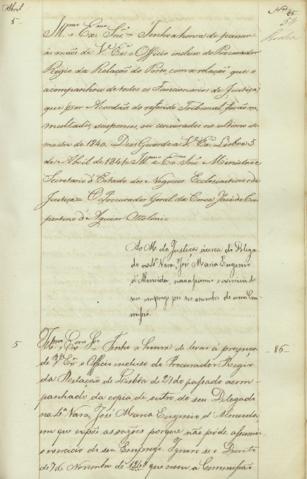 Abril
5.
Illmo e Exmo Snr = Tenho a honra de passar
ás mãos de V. Exa o Officio incluso do Procurador
Regio da Relação do Porto, com a relação que o
acompanhava de todos os Funccionarios de Justiça
que por Accordãos do referido Tribunal forão
multados, suspensos, ou censurados no ultimo
de 1840. Deos Guarde a V. Exa Lisboa 5
de Abril de 1841 = Illmo e Exmo Snr Ministro e
Secretario d'Estado dos Negocios Ecclesiasticos e de
Justiça = O Procurador Geral da Corôa, José de Cupertino
de Aguiar Ottolini
Ao M. da Justiça ácerca do Delegado
na 6ª Vara, José Maria Eugenio
d'Almeida
seu emprego por ser membro de uma
5
Illmo e Exmo Snr = Tenho a honra de levar á presença
de V. Exa o Officio incluso do Procurador Regio
da Relação de Lisboa de 21 do passado acompanhado
da copia de outro do seu Delegado
na 6ª Vara, José Maria Eugenio d'Almeida
em que expõe as razões porque não póde assumir
o exercicio do seu Emprego. Ignoro se o Decreto
de 7 de Novembro de que creou a Commissão
86